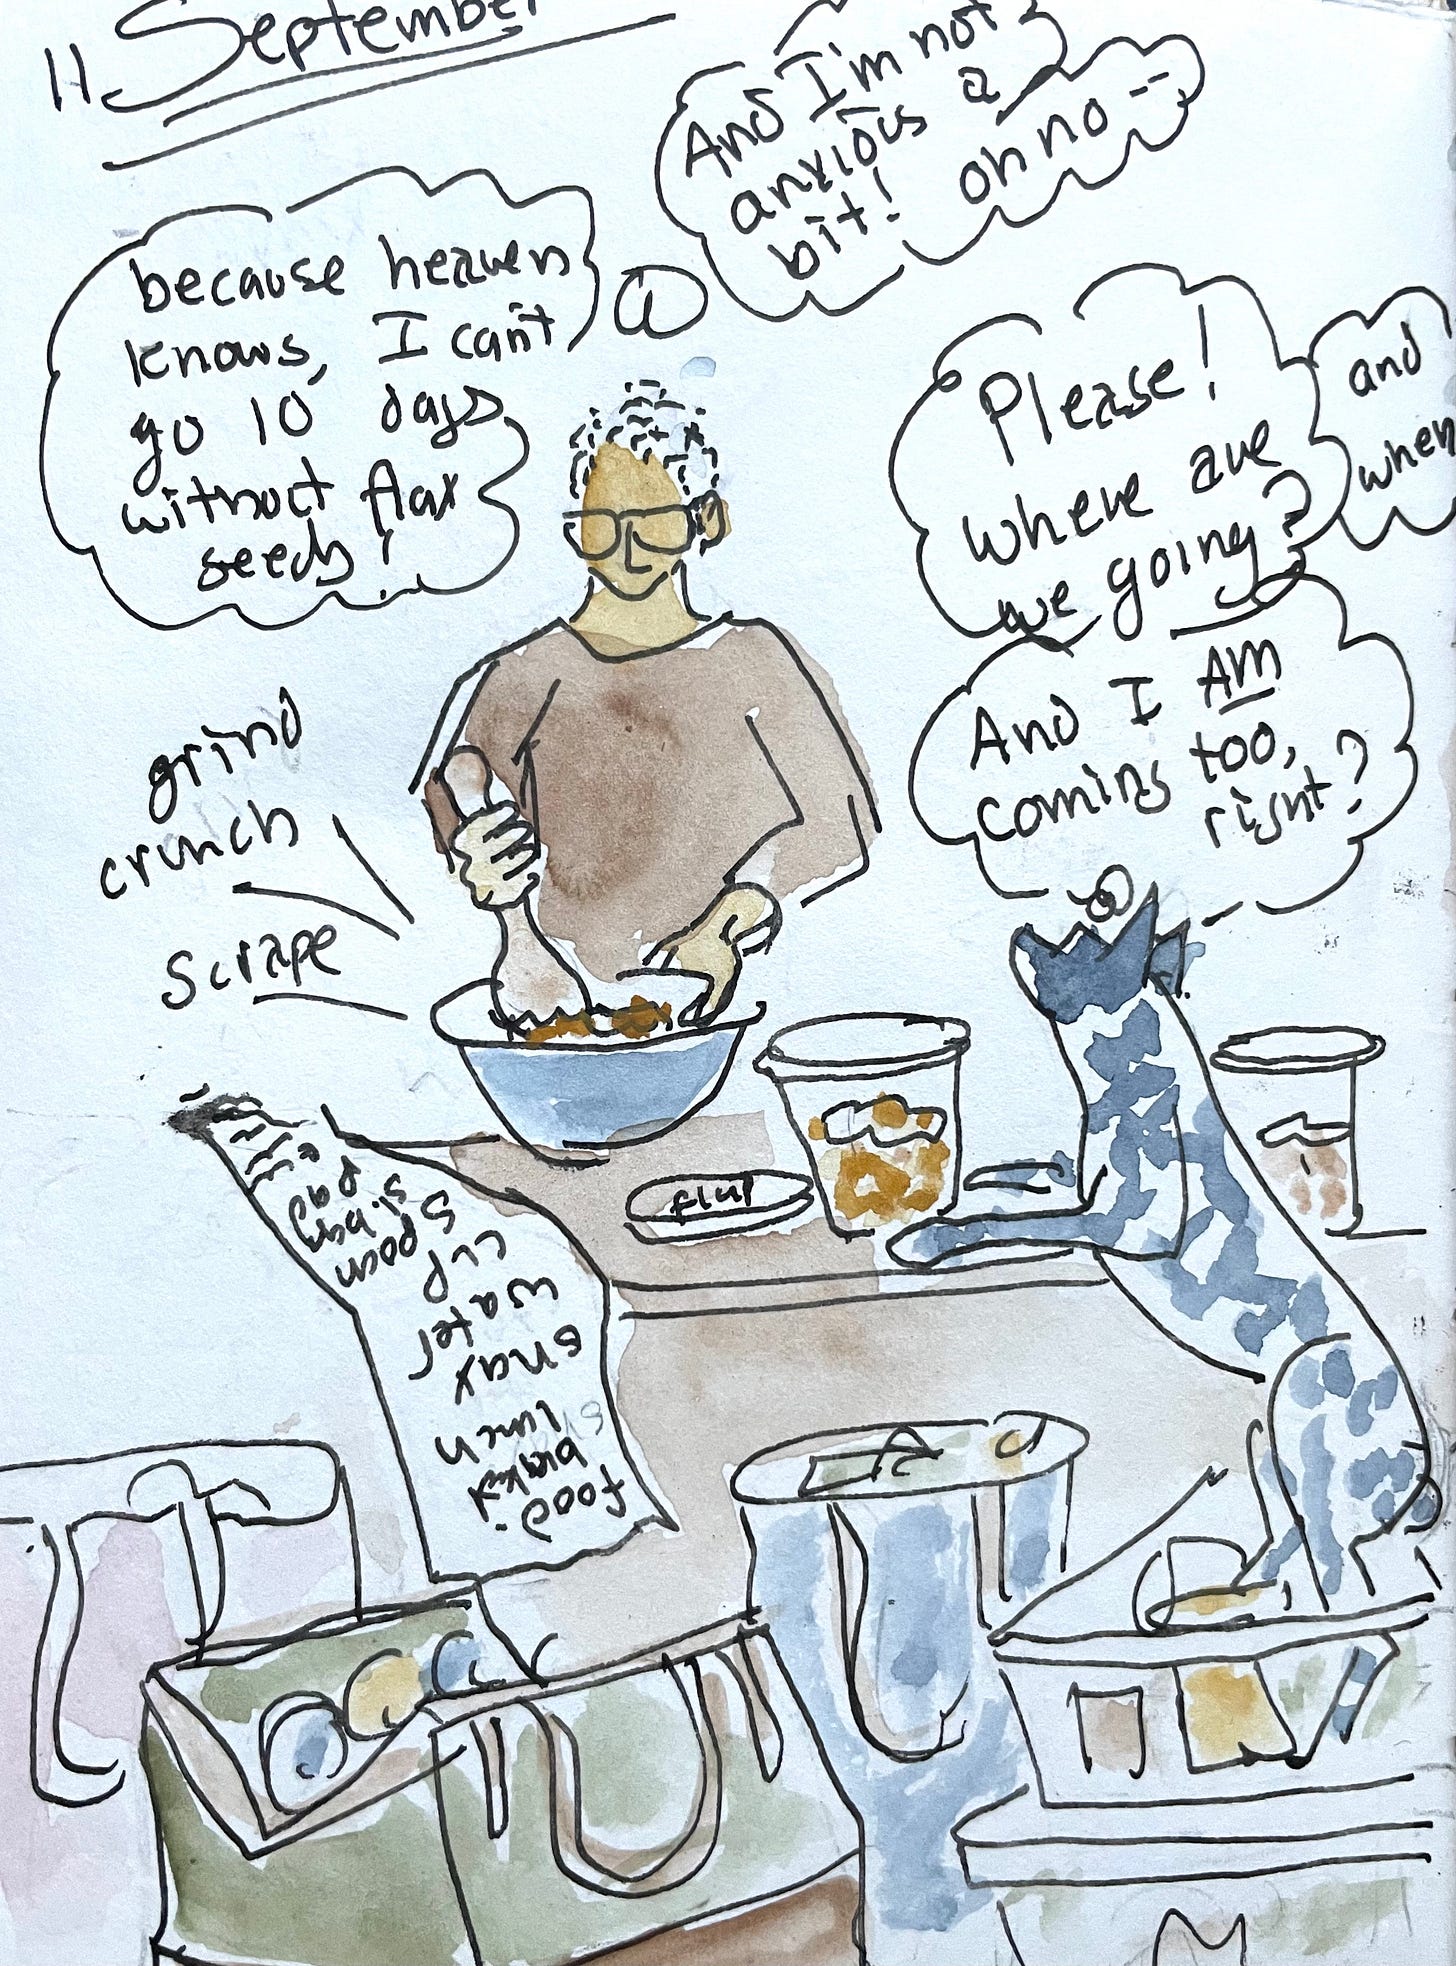 11 September
And I'm not
anxious a
bit! oh no --
because heaven
knows, I can't
go 10 days
without flax
seeds!
Please!
where are
we going?
and
when
And I AM
coming too,
right?
grind
crunch
scrape
food
lunch
snax
water
cup
spoon